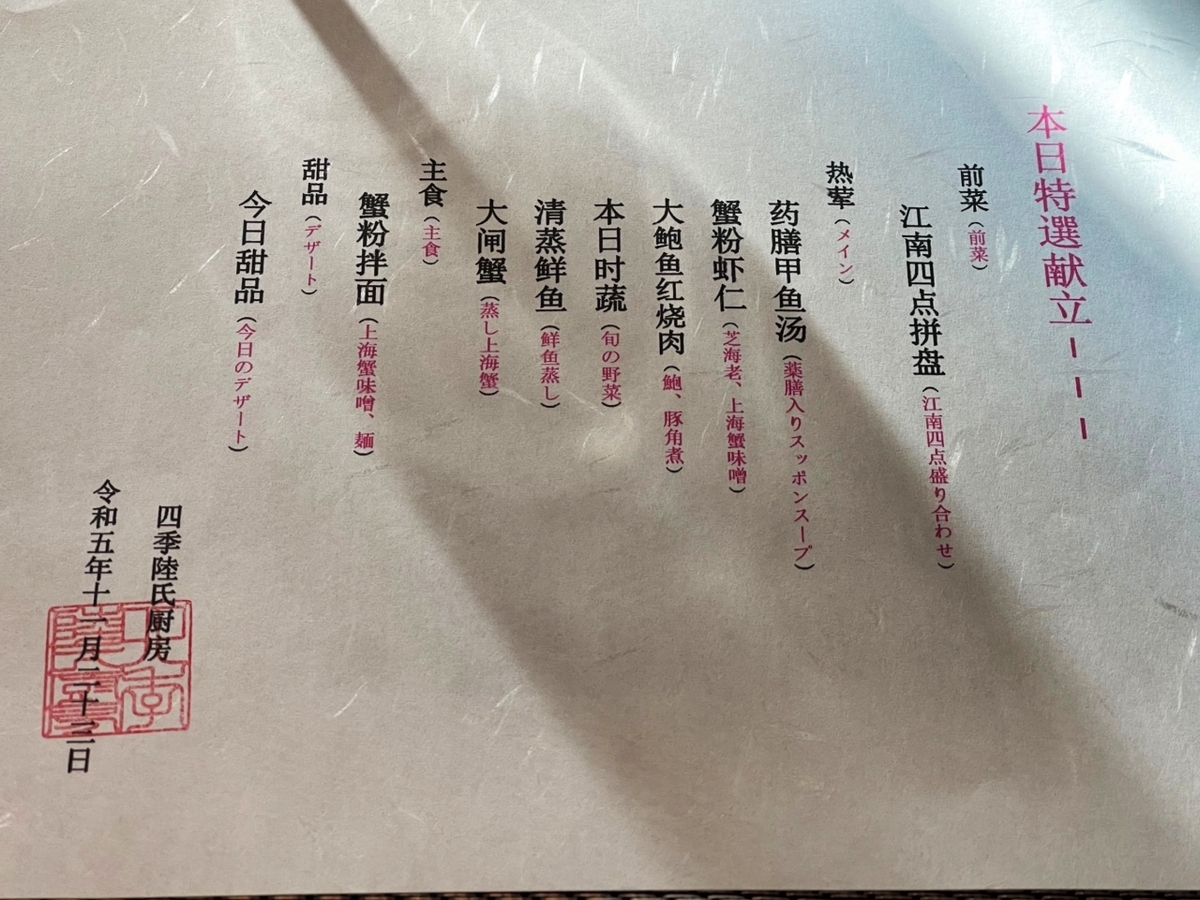 本日特選献立ーーー
前菜（前菜）
江南四点拼盘（江南四点盛り合わせ）
热荤（メイン）
药膳甲鱼汤（薬膳入りスッポンスープ）
蟹粉虾仁（芝海老、上海蟹味噌）
大鲍鱼红烧肉（鮑、豚角煮）
本日时蔬（旬の野菜）
清蒸鲜鱼（鮮魚蒸し）
大闸蟹（蒸し上海蟹）
主食（主食）
蟹粉拌面（上海蟹味噌、麺）
甜品（デザート）
今日甜品（今日のデザート）
四季陸氏厨房
令和五年十一月二十三日